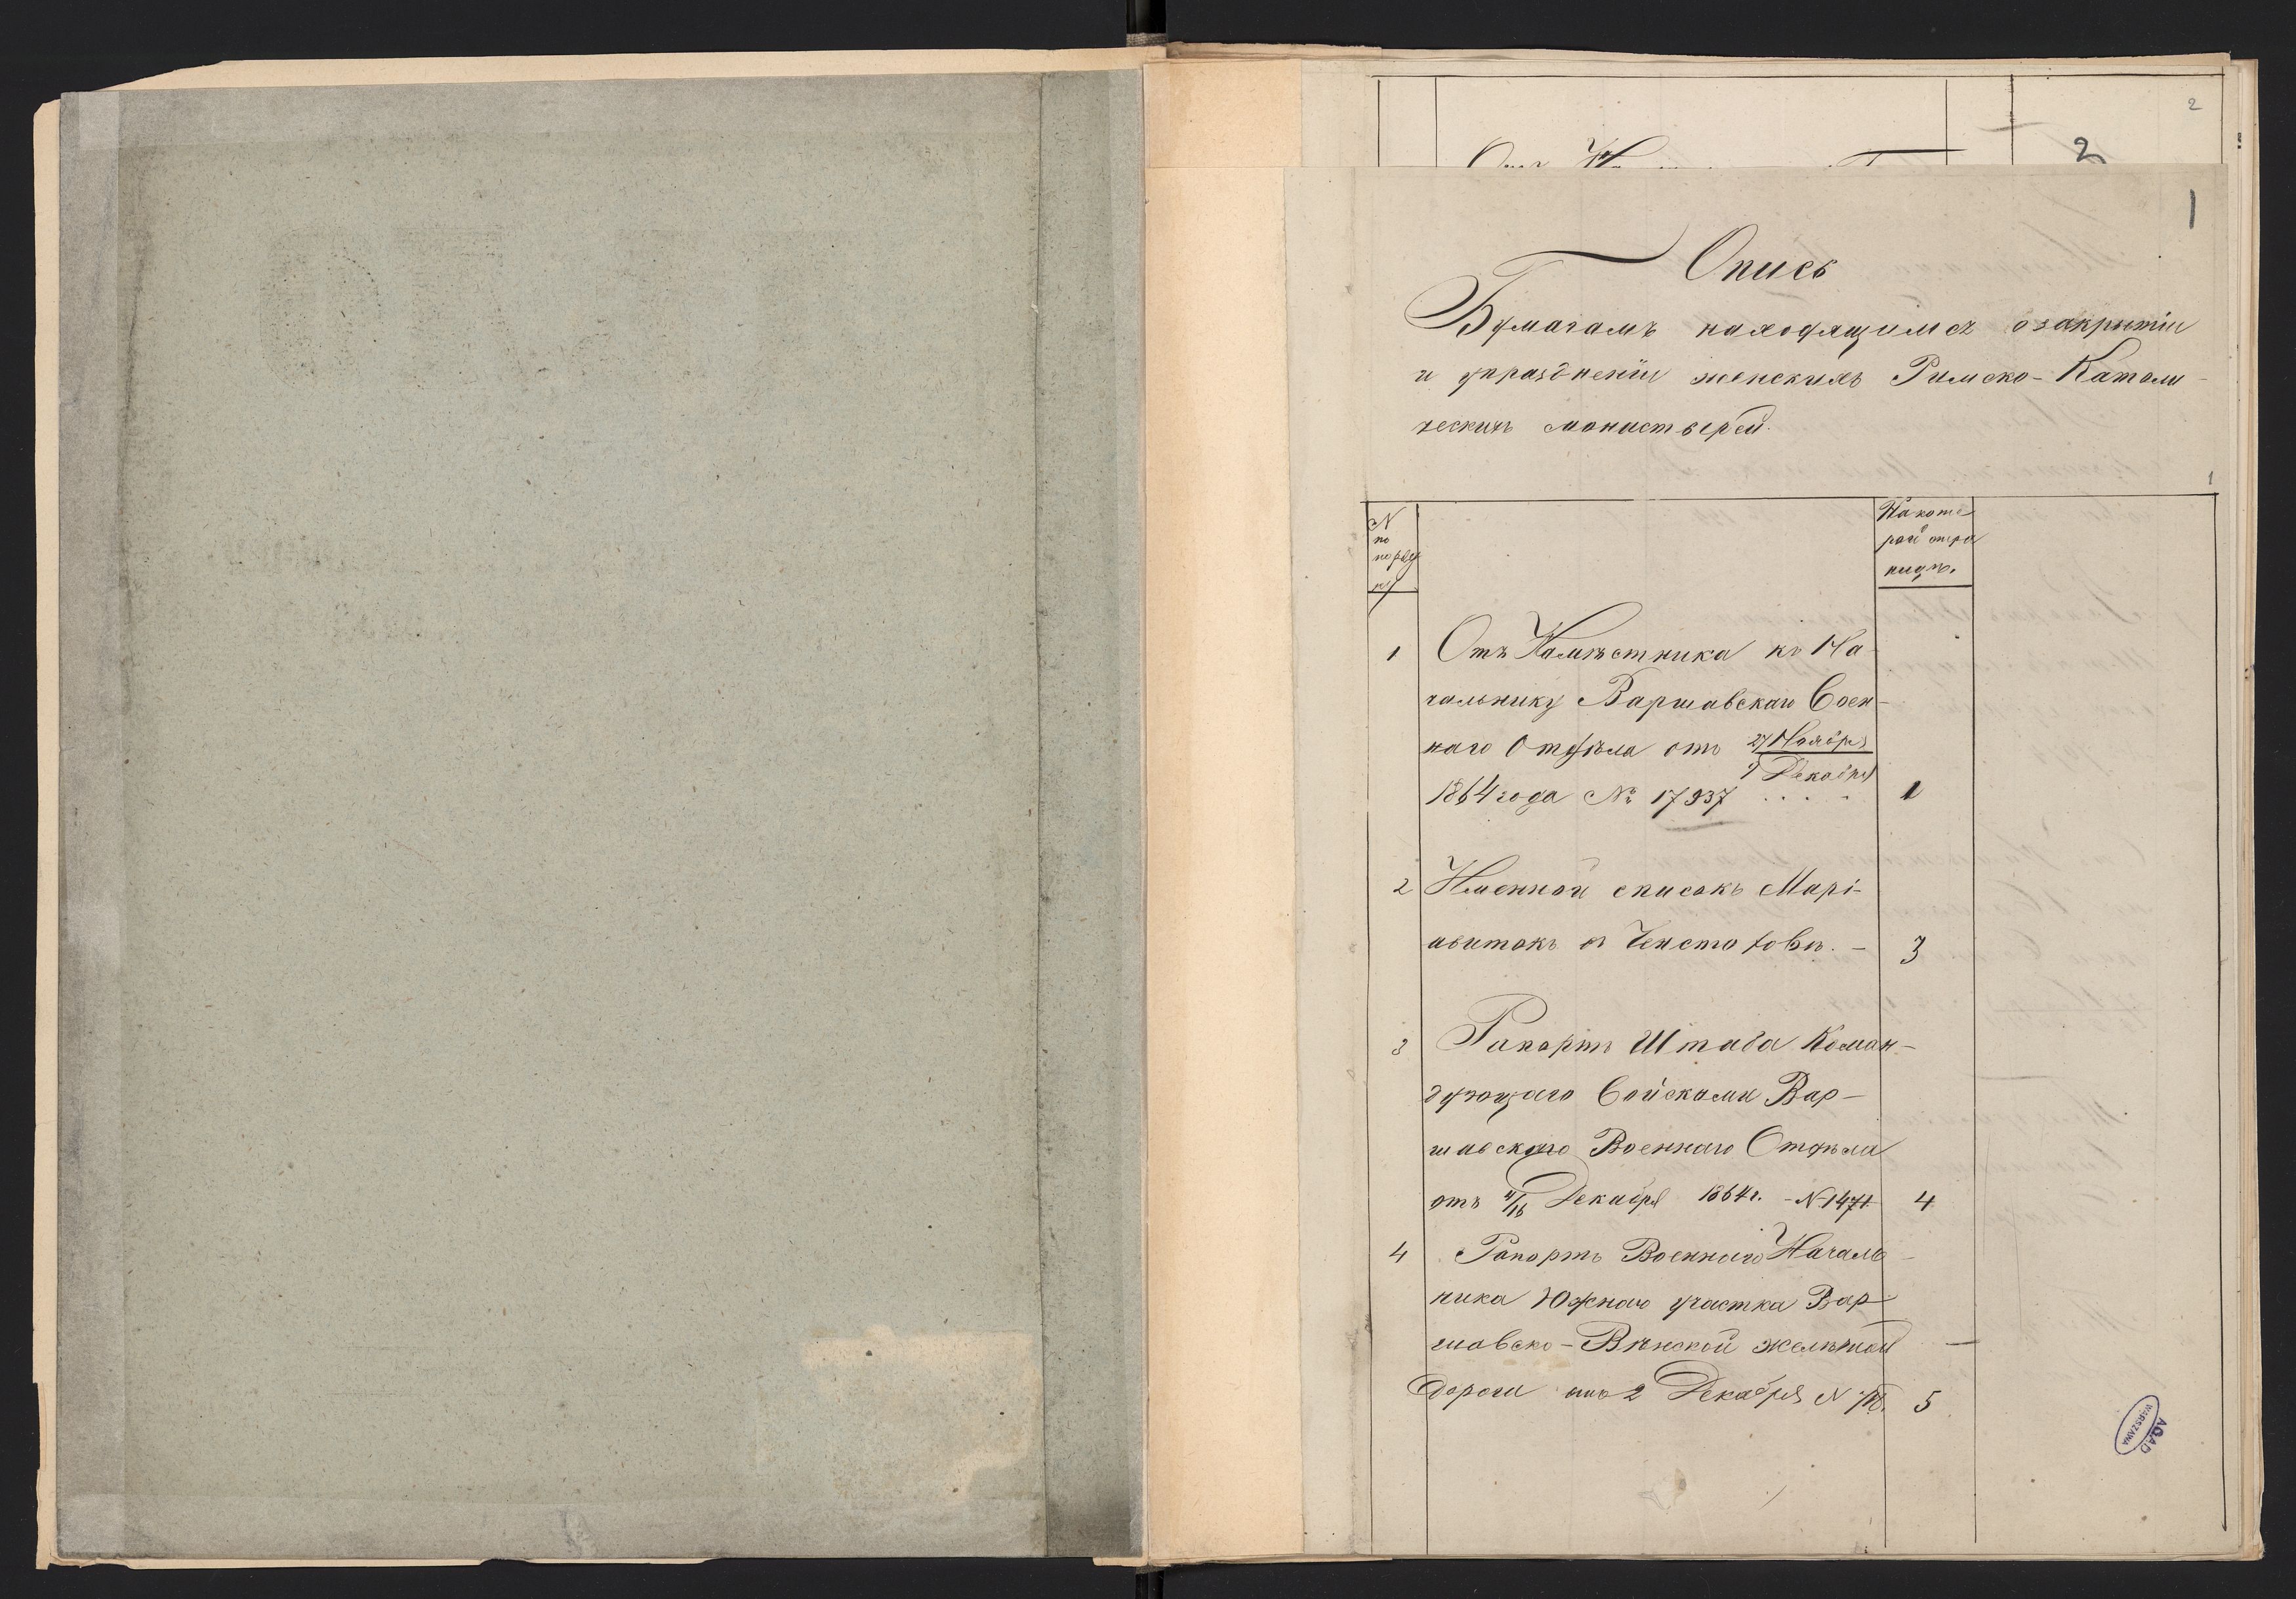 2
2
1
Опись
Бумагамъ находящимся о закрытіи
и упраздненіи женскихъ Римско-Католи-
ческихъ монистверей.
1
N по порядку
На которой страницѣ.
1 Отъ Намѣстника къ На-
чальнику Варшавскаго Воен-
наго Отдѣла отъ 27 Ноября
9 Декабря
1864 года № 17937 . . . . 1
2 Именной списокъ Марі-
авитокъ въ Ченстоховѣ. — 3
3 Рапортъ Штаба Коман-
дующаго Войсками Вар-
шавскаго Военнаго Отдѣла
отъ 4/16 Декабря 1864 г. - N 1471 4
4 Рапортъ Военнаго Началь-
ника Южнаго участка Вар-
шавско-Вѣнской желѣзной —
дороги отъ 2 Декабря N 5
AGAD
WARSZAWA